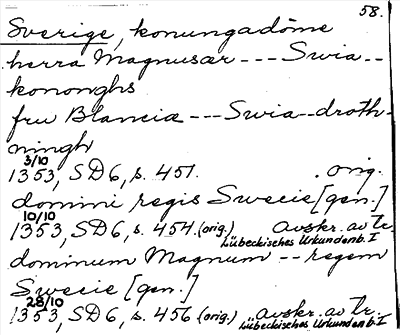 58.
Sverige, konungadöme
herra Magnusær --- Swia--
kononghs
fru Blancia --- Swia--droth-
ningh
3/10
1353, SD6, s. 451. orig.
domini regis Swecie [gen.]
10/10
1353, SD6, s. 454. (orig.) avskr. av tr.
Lübeckisches Urkundenb. I
dominum Magnum -- regem
Swecie [gen.]
28/10
1353, SD6, s. 456 (orig.) avskr. av tr.
Lübeckisches Urkundenb. I